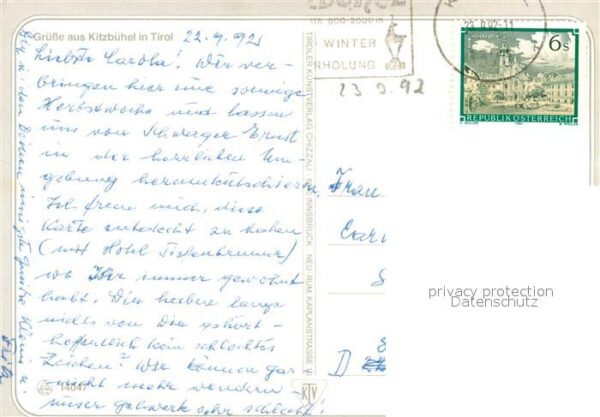 Grüße aus Kitzbühel in Tirol
22.9.92
Liebste Carola! Wir ver-
bringen hier eine sonnige
Herbstwoche und lassen
uns von Schwager Ernst
in der herrlichen Um-
gebung herumkutschieren.
Ich freue mich, diese
Karte entdeckt zu haben
(mit Hotel
wo Ihr immer gewohnt
habt. Die habe lange
nichts von Dir gehört -
hoffentlich kein schlechtes
Zeichen? Wir können gar
nicht mehr wandern
unser Gehwerk sehr schlecht!
14047
TIROLER KUNSTVERLAG CHIZZALI INNSBRUCK - NEU-RUM KAPLANSTRASSE
KTV
ÜA 800-2000 m
WINTER
ERHOLUNG
23.9.92-11
23.9.92
6s
REPUBLIK ÖSTERREICH
Frau
Car
S
D
privacy protection
Datenschutz